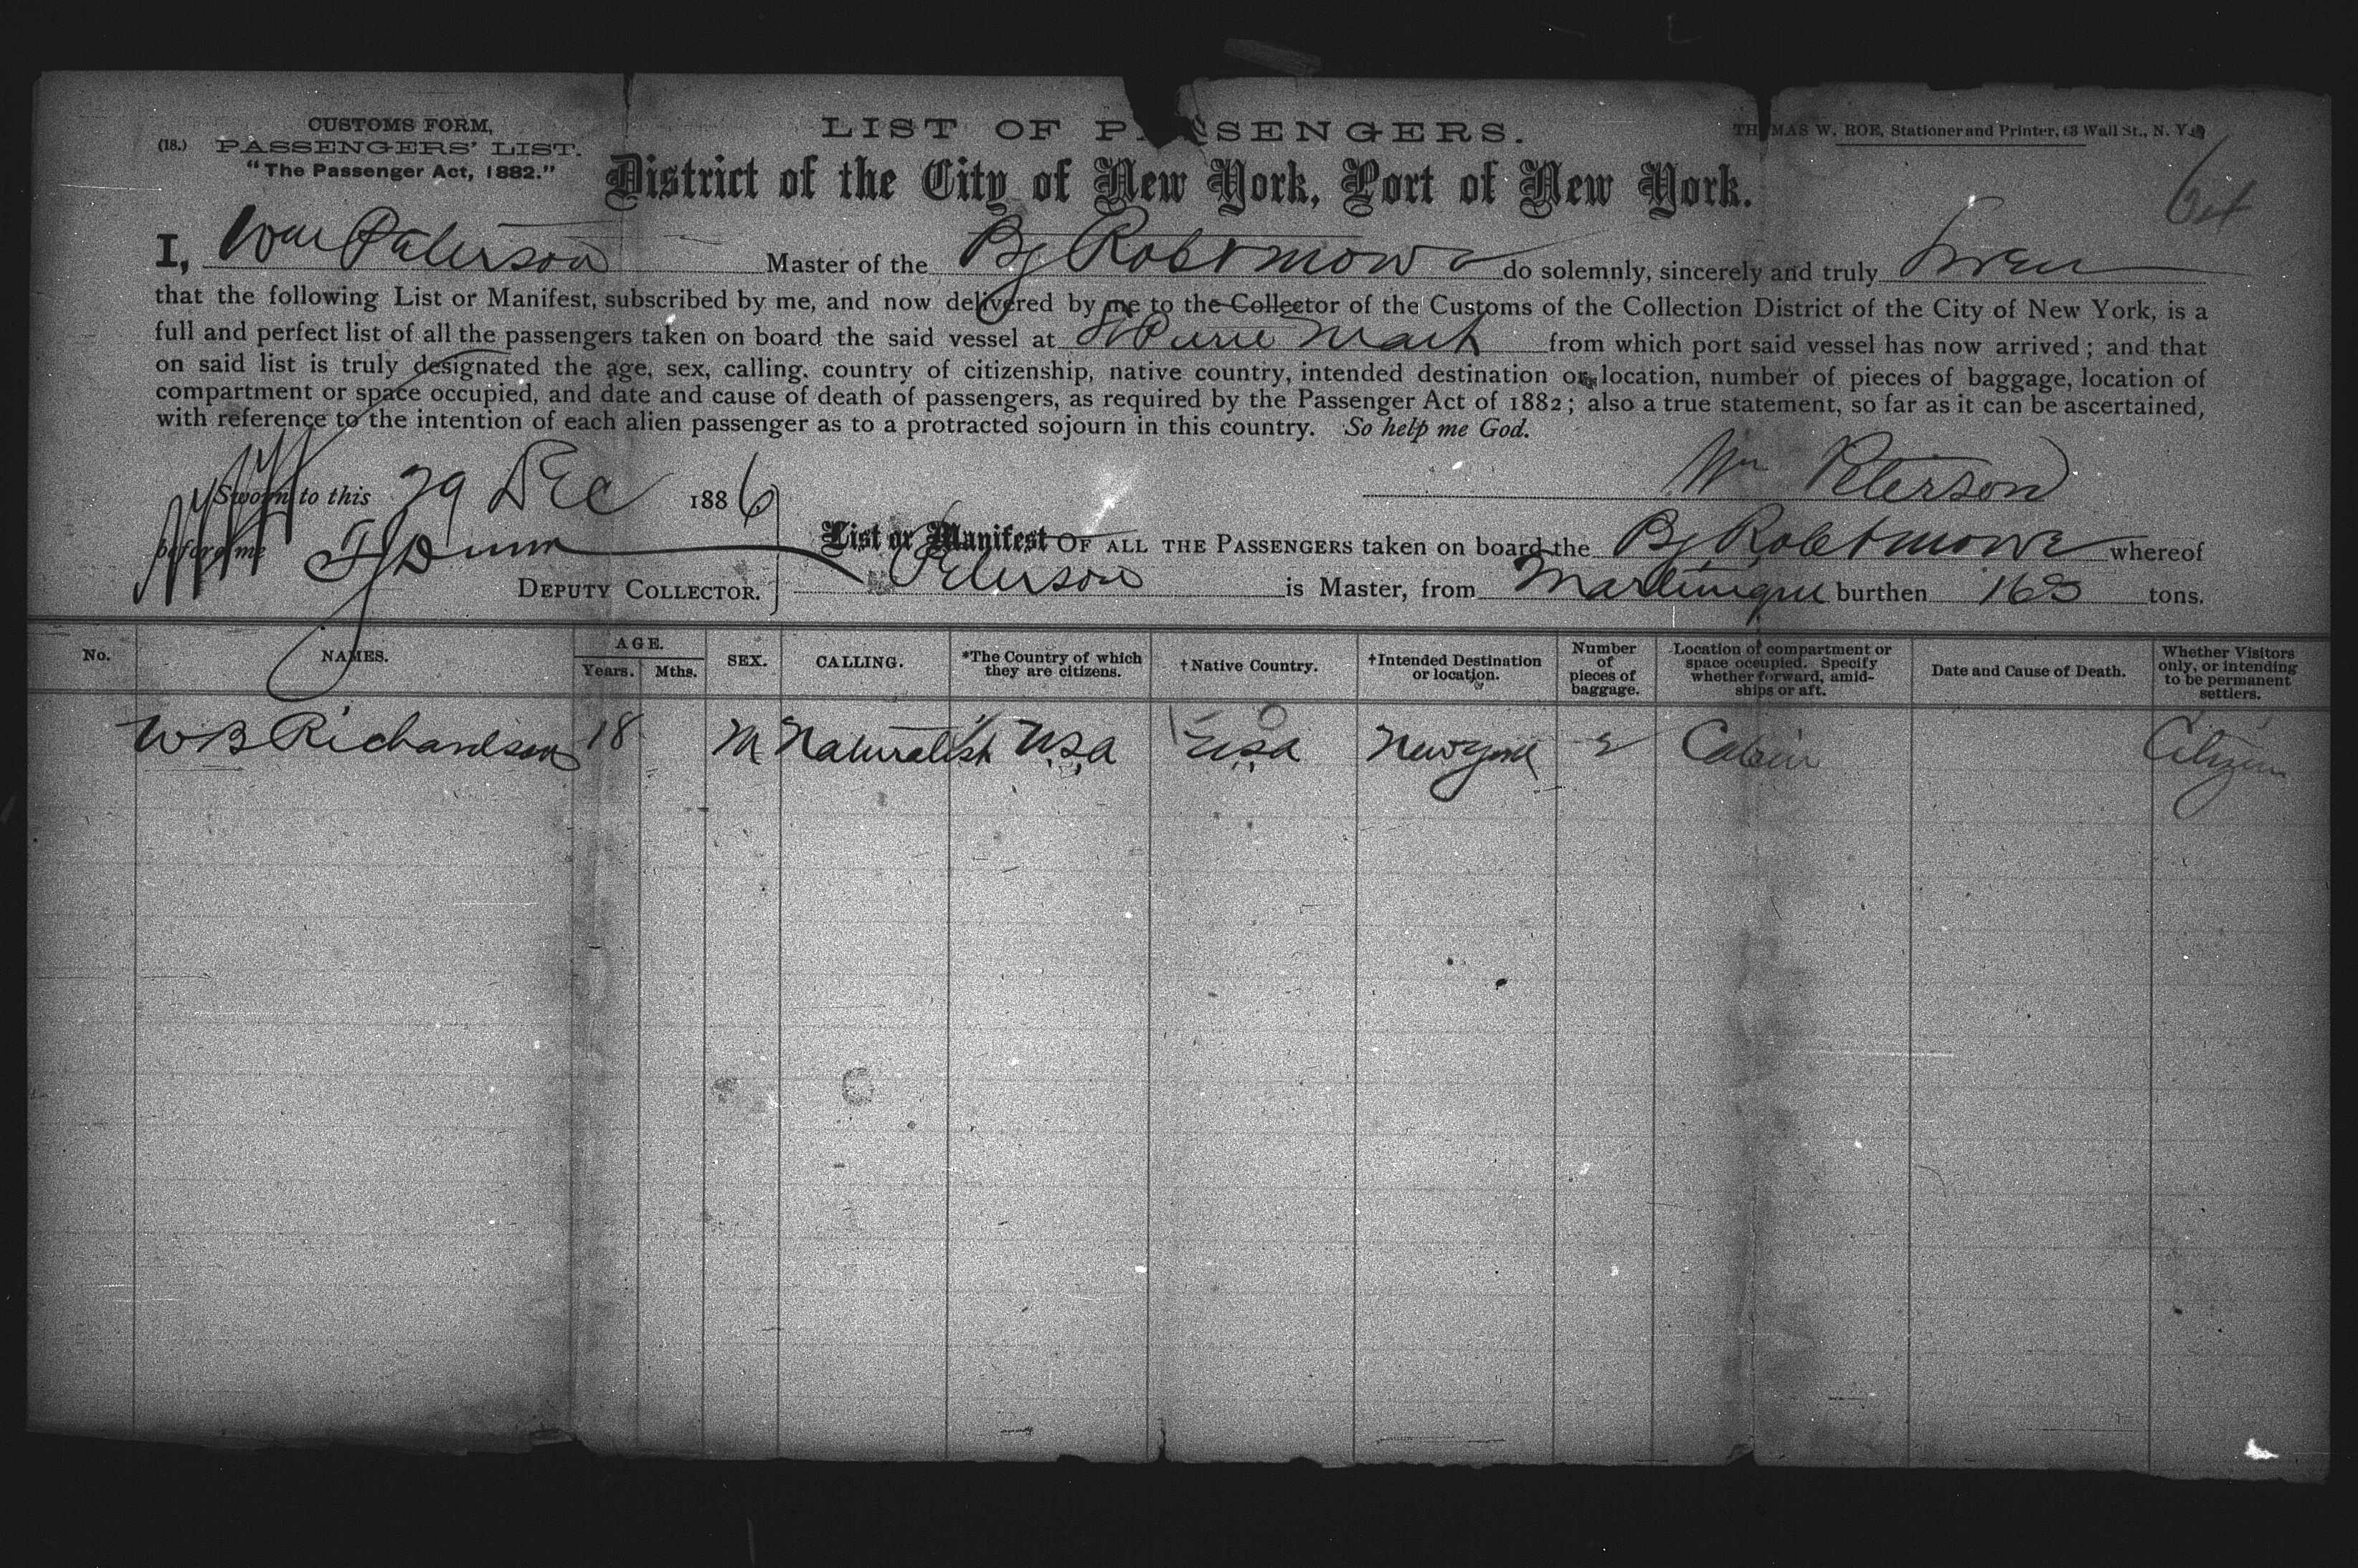 CUSTOMS FORM,
(18.) PASSENGERS' LIST.
"The Passenger Act, 1882."
LIST OF PASSENGERS.
THOMAS W. ROE, Stationer and Printer, 63 Wall St., N. Y.
District of the City of New York, Port of New York.
I, Wm Paterson Master of the Bg Robt Mowe do solemnly, sincerely and truly swear
that the following List or Manifest, subscribed by me, and now delivered by me to the Collector of the Customs of the Collection District of the City of New York, is a
full and perfect list of all the passengers taken on board the said vessel at St Pierre Mart from which port said vessel has now arrived; and that
on said list is truly designated the age, sex, calling, country of citizenship, native country, intended destination or location, number of pieces of baggage, location of
compartment or space occupied, and date and cause of death of passengers, as required by the Passenger Act of 1882; also a true statement, so far as it can be ascertained,
with reference to the intention of each alien passenger as to a protracted sojourn in this country. So help me God.
Wm Peterson
Sworn to this 29 Dec 1886
before me Dunn
DEPUTY COLLECTOR.
List or Manifest OF ALL THE PASSENGERS taken on board the Bg Robt Mowe whereof
Peterson is Master, from Martinique burthen tons.
No. NAMES. AGE. Years. Mths. SEX. CALLING. *The Country of which they are citizens. †Native Country. †Intended Destination or location. Number of pieces of baggage. Location of compartment or space occupied. Specify whether forward, amidships or aft. Date and Cause of Death. Whether Visitors only, or intending to be permanent settlers.
W B Richardson 18 M Naturalist U.S.A U.S.A New York 2 Cabin Citizen